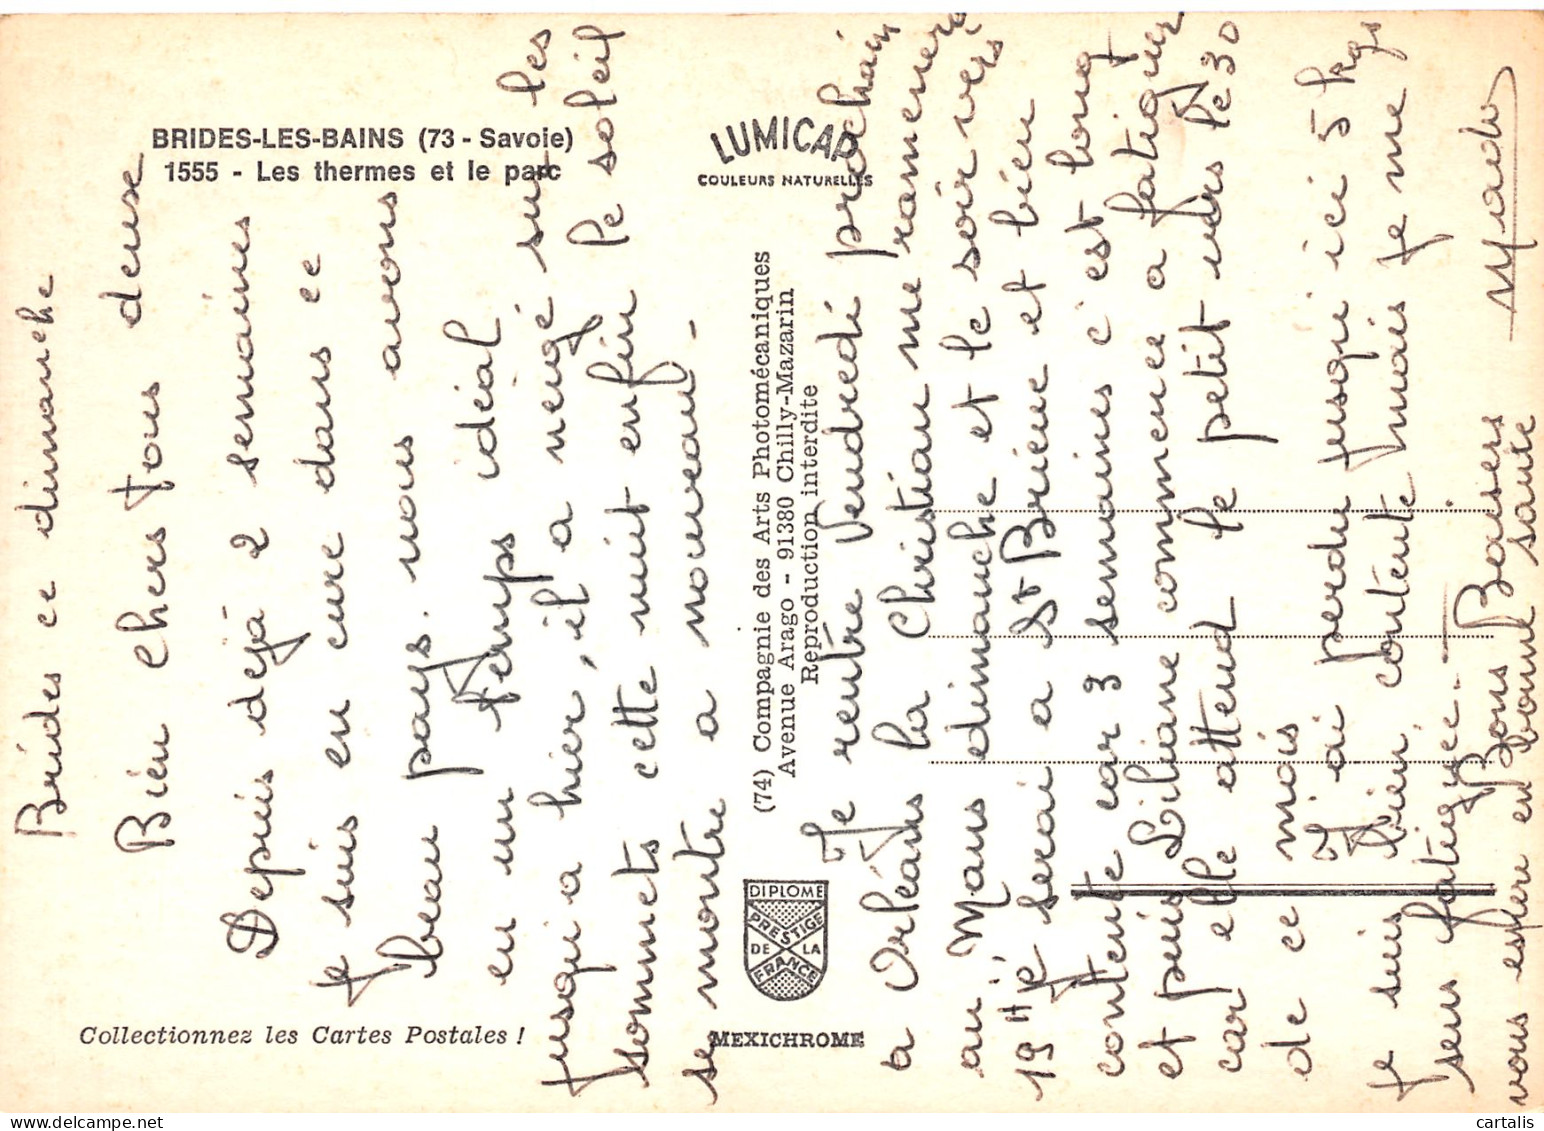 BRIDES-LES-BAINS (73 - Savoie)
1555 - Les thermes et le parc
LUMICAP
COULEURS NATURELLES
(74) Compagnie des Arts Photomécaniques
Avenue Arago - 91380 Chilly-Mazarin
Reproduction interdite
DIPLOME
PRESTIGE
DE LA
FRANCE
MEXICHROME
Collectionnez les Cartes Postales !
Brides ce dimanche
Bien chers tous deux
Depuis déjà 2 semaines
je suis en cure dans ce
beau pays. nous avons
eu un temps idéal
jusqu'a hier, il a neigé sur les
sommets cette nuit enfin le soleil
se montre a nouveau -
Je rentre Vendredi prochain
a Orléans la Christian me ramenera
au Mans dimanche et le soir vers
19H je serai a St Brieuc et bien
contente car 3 semaines c'est long
et puis Liliane commence a fatiguer
car elle attend le petit vers le 30
de ce mois
J'ai perdu jusqu'ici 5 kgs
je suis bien contente mais je me
sens fatiguée.
Bons Baisers
vous espère en bonne santé
Mado
cartalis